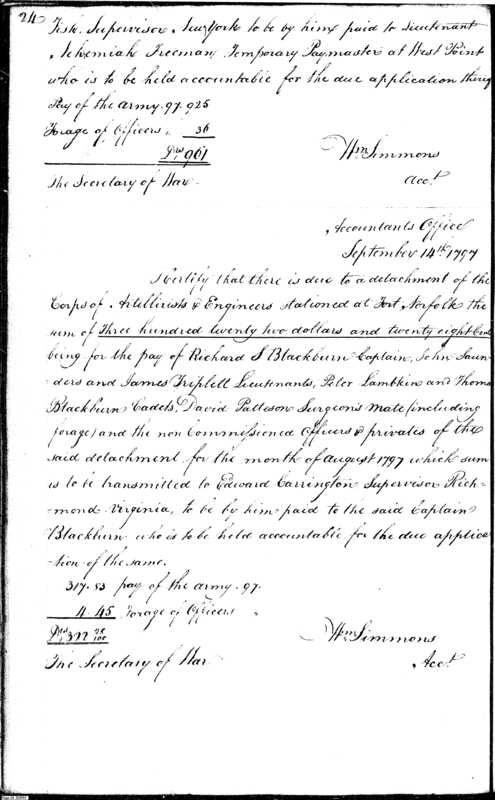 24
Fisk. Supervisor New York to be by him paid to Lieutenant
Nehemiah Freeman Temporary Paymaster at West Point
who is to be held accountable for the due application thereof
Pay of the army. 97. 925
Forage of Officers " 36
Drs 961
Wm Simmons
Acct.
The Secretary of War
Accountants Office
September 14th 1797
I Certify that there is due to a detachment of the
Corps of Artillerists & Engineers stationed at Fort Norfolk the
sum of Three hundred twenty two dollars and twenty eight Cents
being for the pay of Richard S Blackburn Captain, John Saun-
ders and James Triplett Lieutenants, Peter Lambkin and Thomas
Blackburn Cadets, David Patteson Surgeons mate (including
forage) and the non Commissioned Officers & privates of the
said detachment for the month of August 1797 which sum
is to be transmitted to Edward Carrington Supervisor Rich-
mond Virginia, to be by him paid to the said Captain
Blackburn who is to be held accountable for the due applica
tion of the same.
317.83 pay of the army. 97.
4.45 Forage of Officers "
Drs 322 28/100
Wm Simmons
Acct.
The Secretary of War